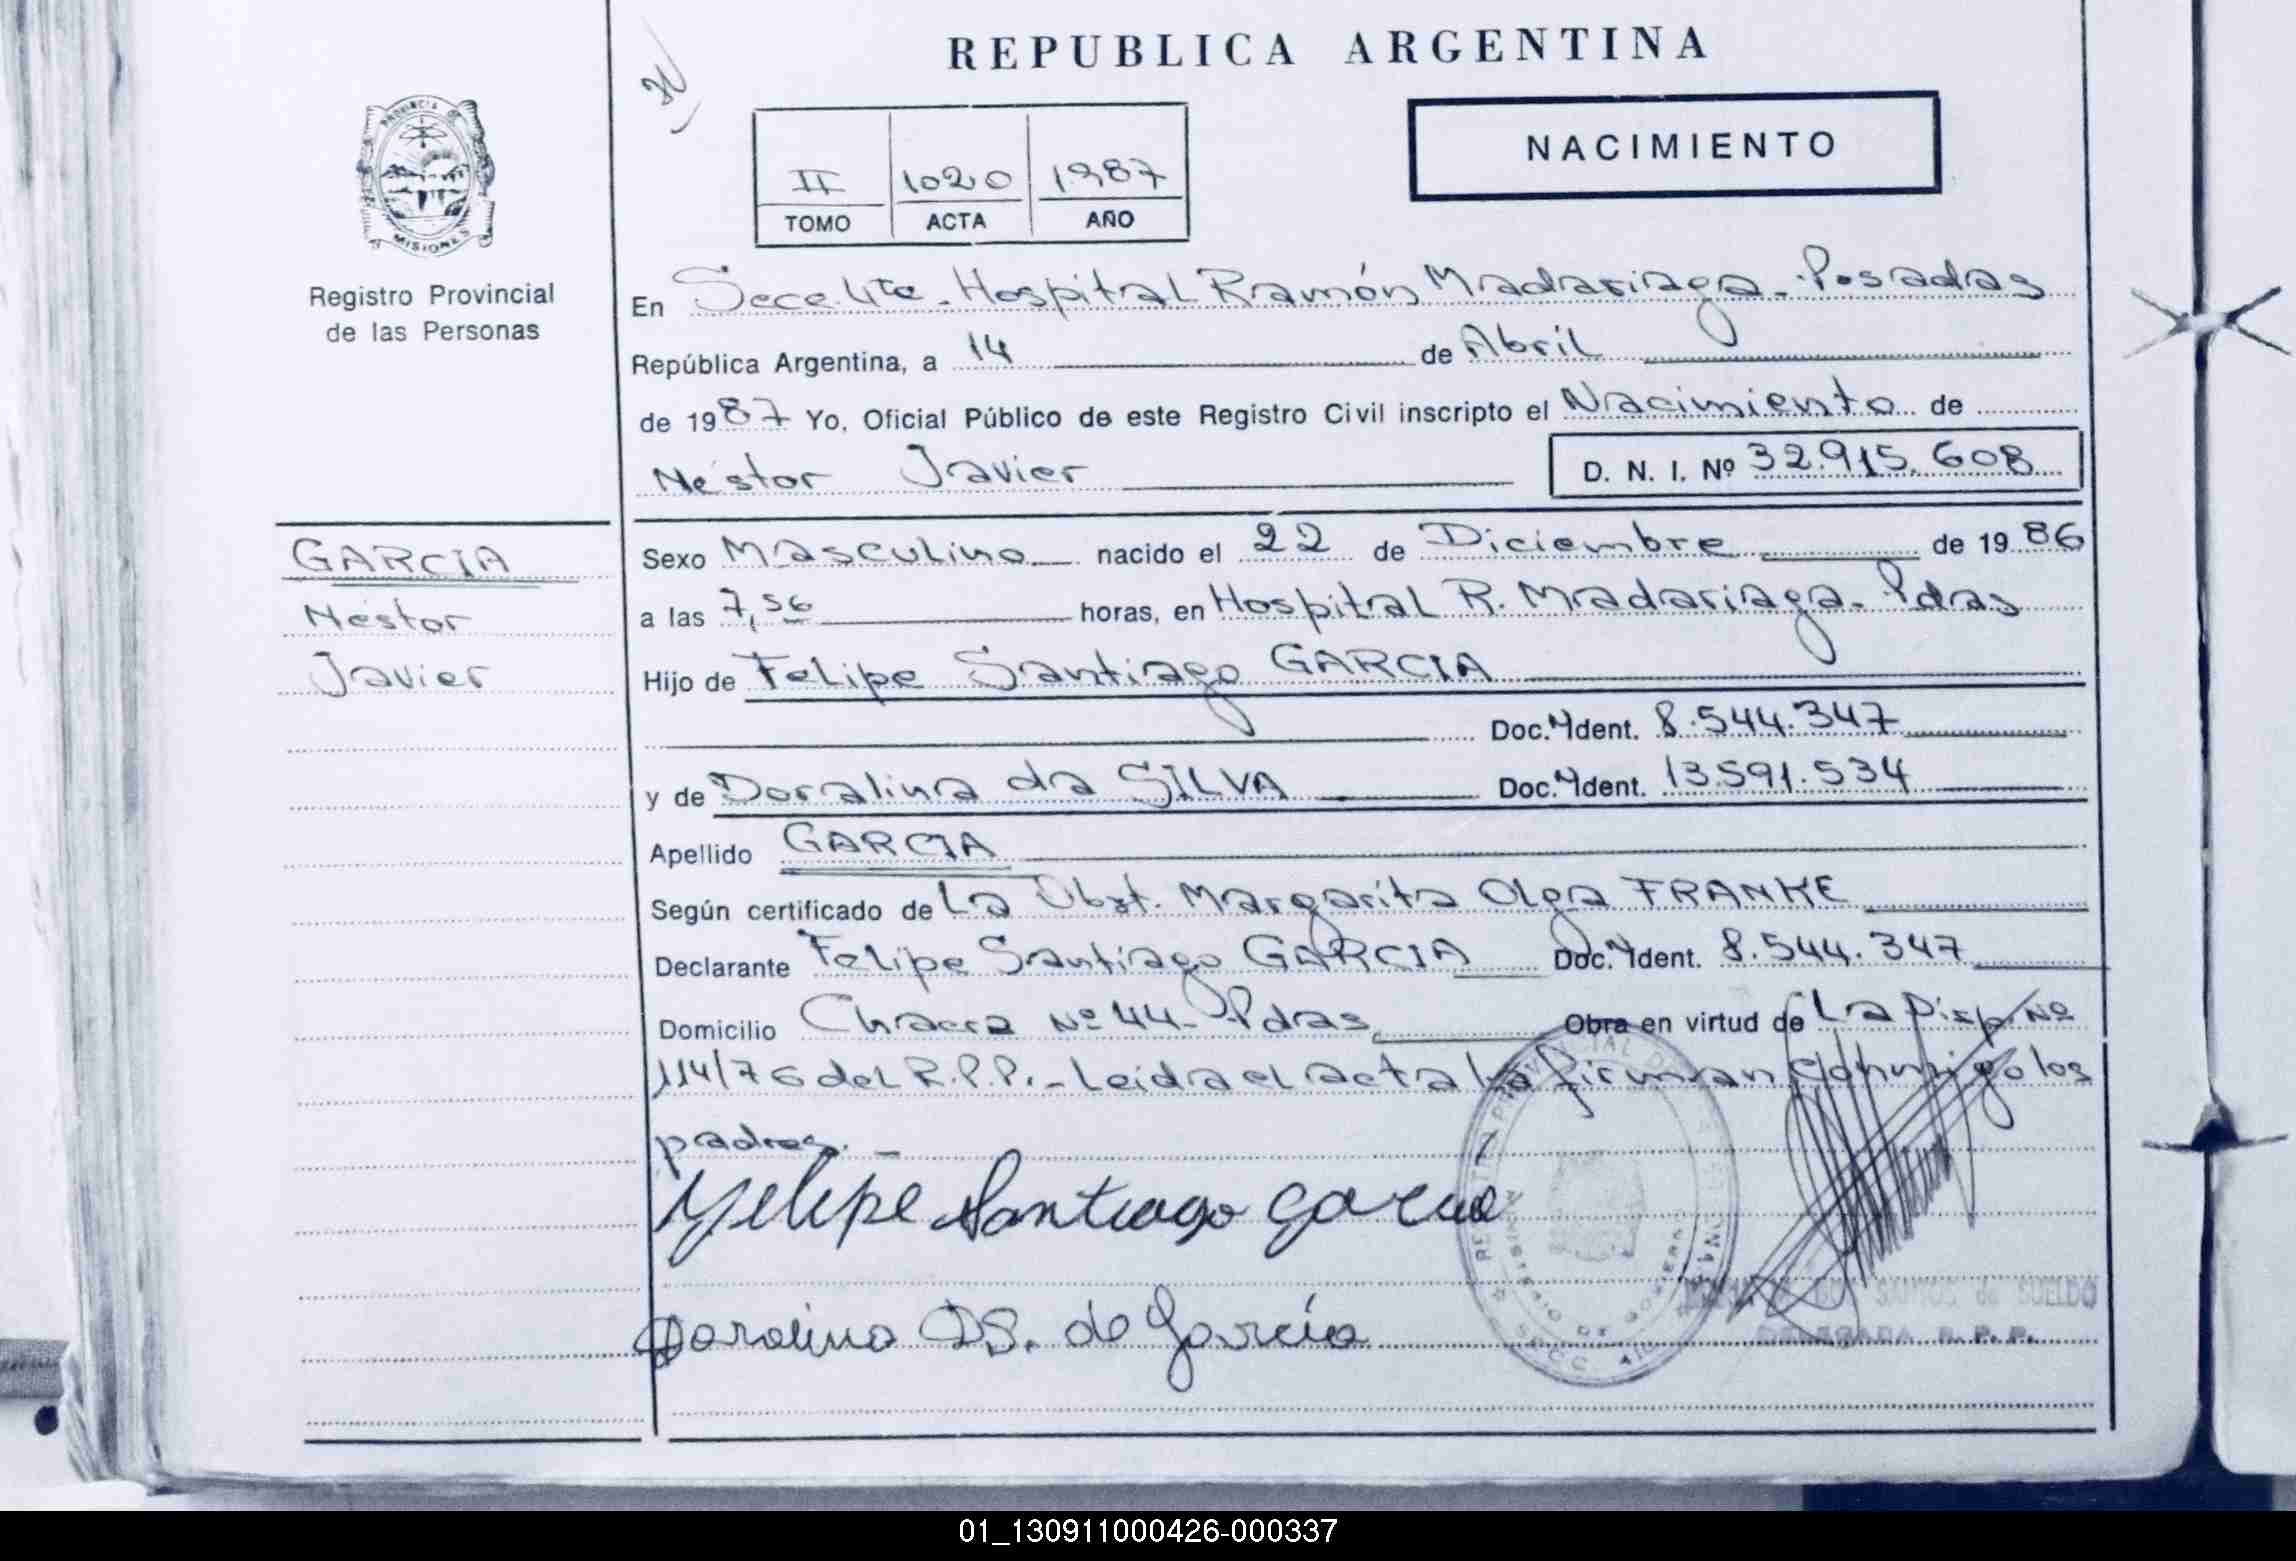 REPUBLICA ARGENTINA
PROVINCIA DE
MISIONES
Registro Provincial
de las Personas
II 1020 1987
TOMO ACTA AÑO
NACIMIENTO
En Secc. 4ta. Hospital Ramón Madariaga - Posadas
República Argentina, a 14 de Abril
de 1987 Yo, Oficial Público de este Registro Civil inscripto el Nacimiento de
Néstor Javier D. N. I. Nº 32.915.608
GARCIA
Néstor
Javier
Sexo Masculino nacido el 22 de Diciembre de 1986
a las 7,56 horas, en Hospital R. Madariaga - Pdas
Hijo de Felipe Santiago GARCIA
Doc. Ident. 8.544.347
y de Doralina da SILVA Doc. Ident. 13.591.534
Apellido GARCIA
Según certificado de La Obst. Margarita Olga FRANKE
Declarante Felipe Santiago GARCIA Doc. Ident. 8.544.347
Domicilio Chacra Nº 44 - Pdas. Obra en virtud de La Disp. Nº
114/76 del R.P.P. - Leída el acta la firman conmigo los
padres. -
Felipe Santiago Garcia
Doralina DS. de Garcia
MINISTERIO DE GOBIERNO
DELEGADA R. P. P.
01_130911000426-000337